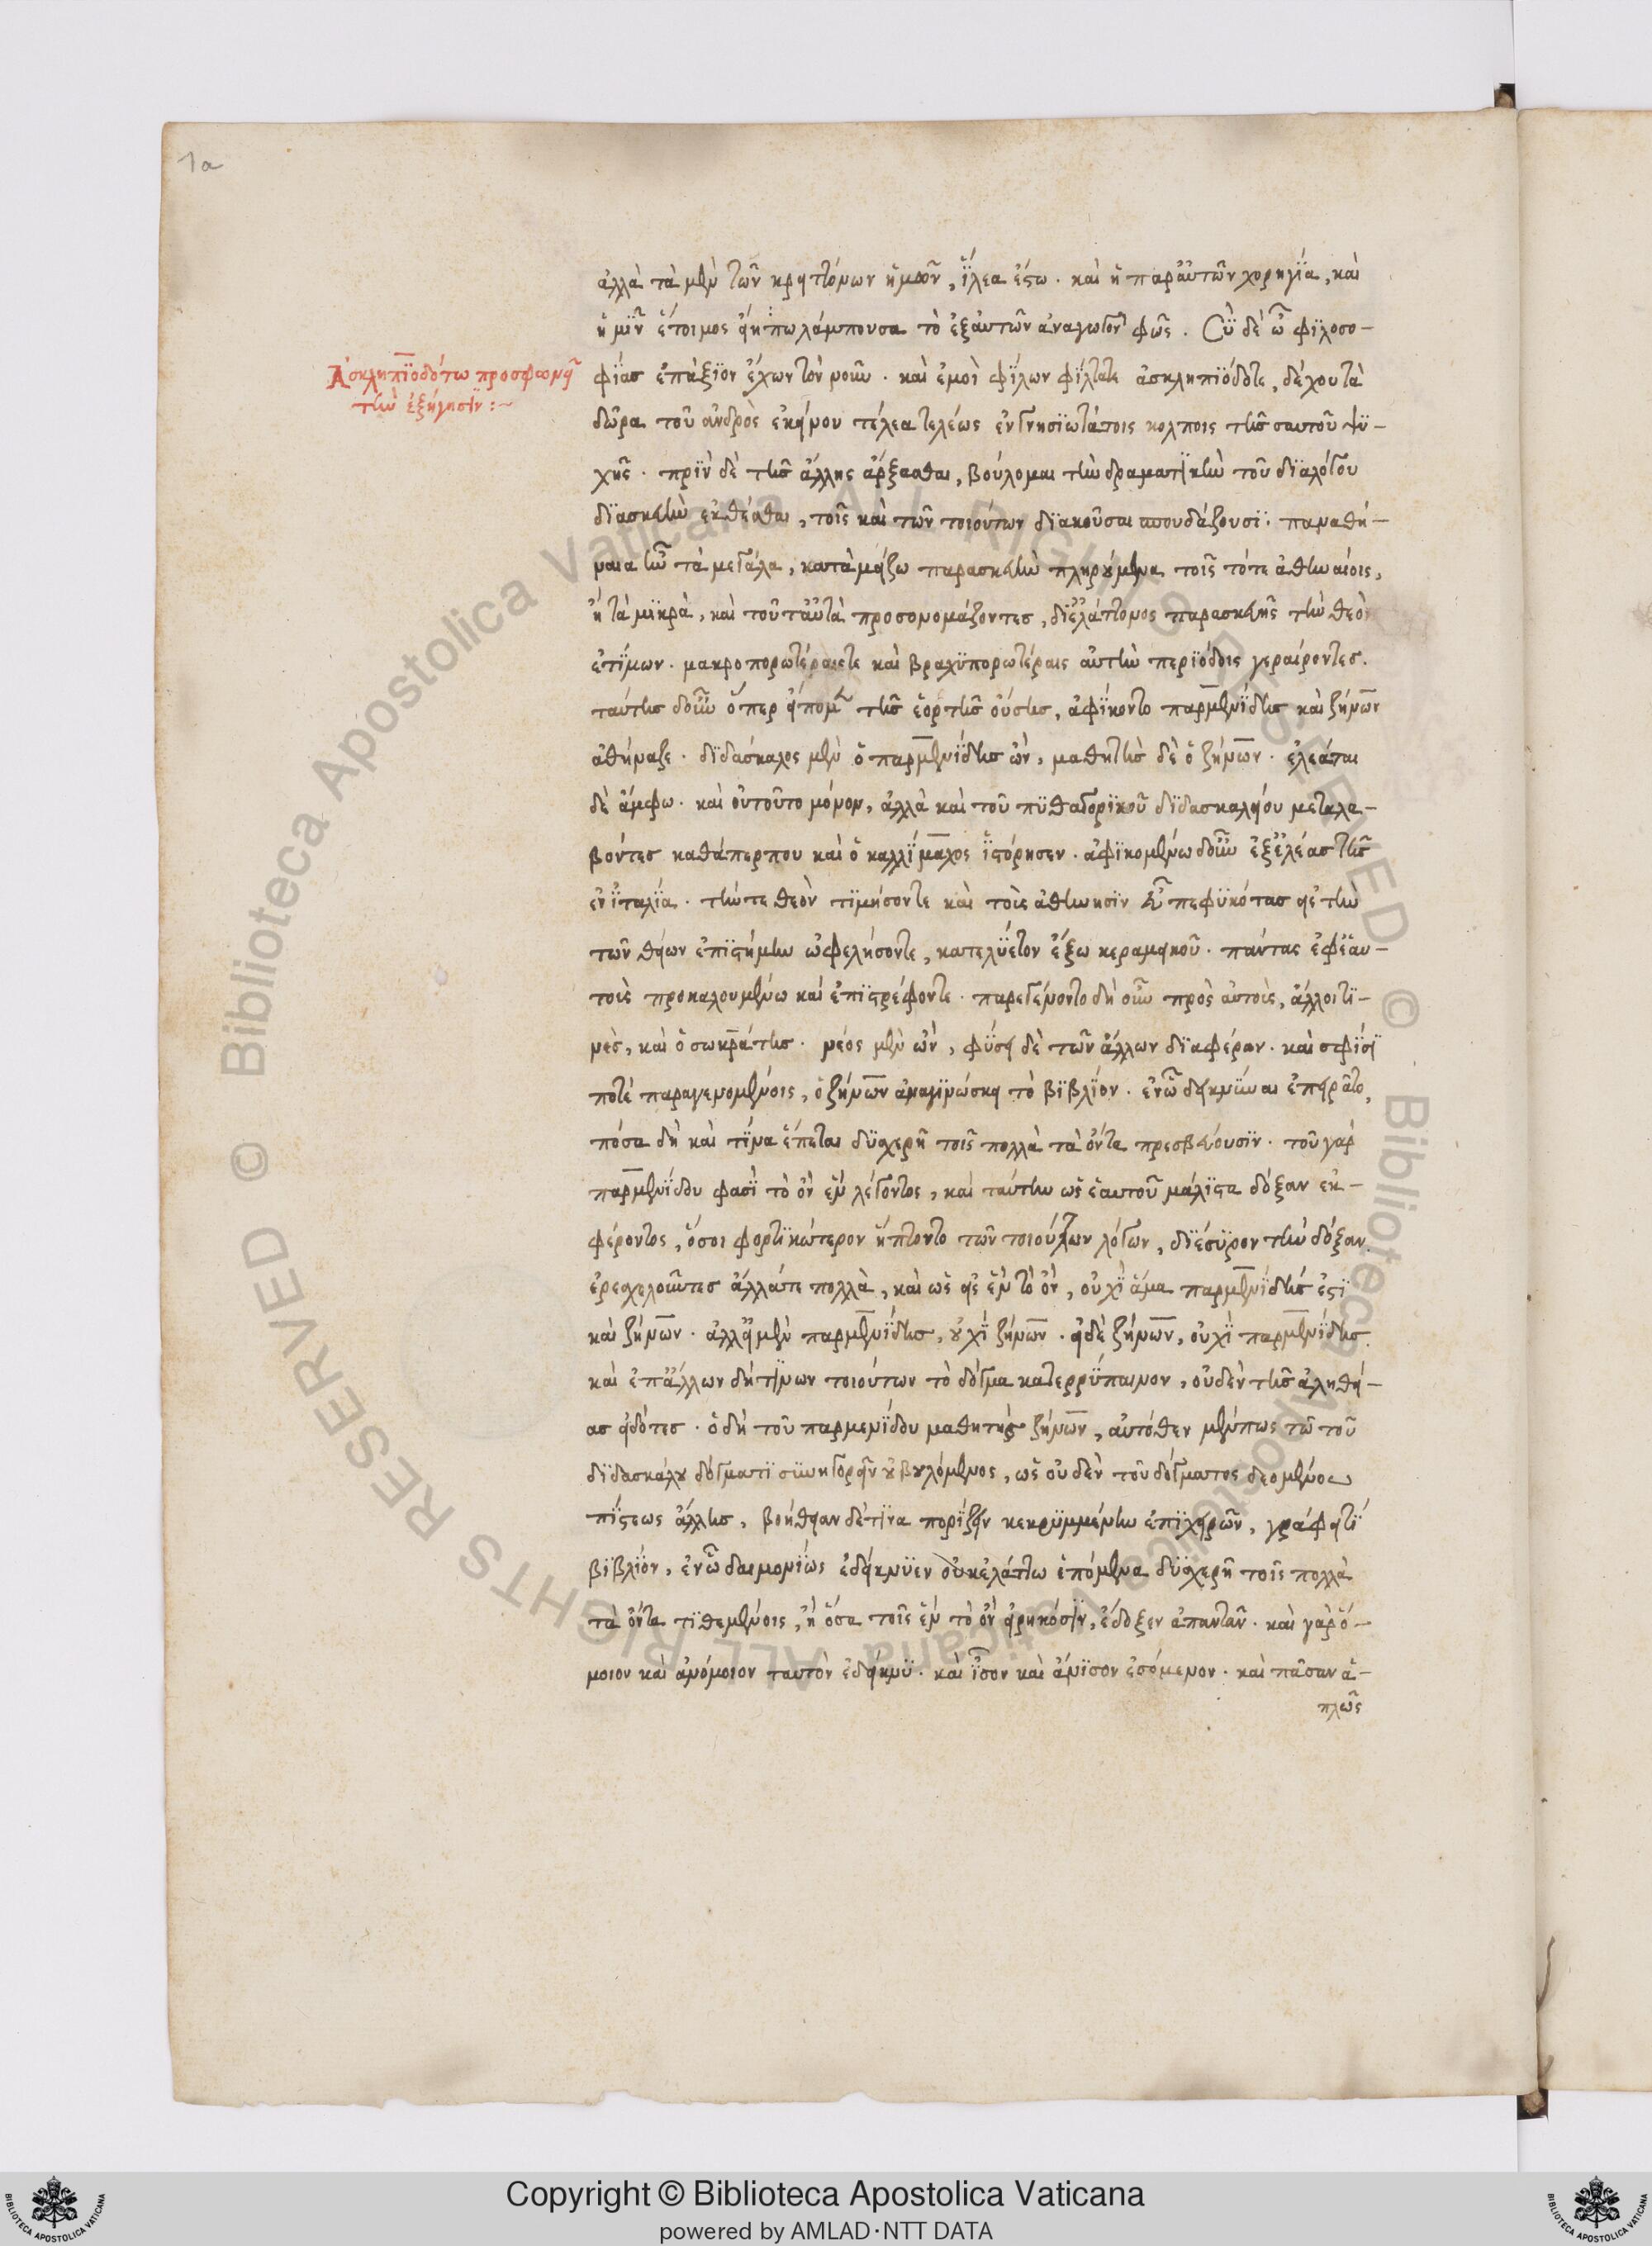 1a
ἀλλὰ τὰ μὲν τῶν κρειττόνων ἡμῶν, ἵλεα ἔστω. καὶ ἡ παρ' αὐτῶν χορηγία, καὶ
ἡμῖν ἕτοιμος εἴη πω λάμπουσα τὸ ἐξ αὐτῶν ἀναγωγὸν φῶς. Σὺ δὲ ὦ φιλοσο-
Ἀσκληπιοδότω προσφωνεῖ
τὴν ἐξήγησιν:~
φίας ἐπάξιον ἔχων τὸν νοῦν. καὶ ἐμοὶ φίλων φίλτατε ἀσκληπιόδοτε, δέχου τὰ
δῶρα τοῦ ἀνδρὸς ἐκείνου τέλεα τελέως ἐν γνησιωτάτοις κόλποις τῆς σαυτοῦ ψυ-
χῆς. πρὶν δὲ τῆς ἄλλης ἄρξασθαι, βούλομαι τὴν δραματικὴν τοῦ διαλόγου
διασκευὴν ἐκθέσθαι, τοῖς καὶ τῶν τοιούτων διακοῦσαι σπουδάζουσι. παναθή-
ναια ἦν τὰ μεγάλα, κατὰ μείζω παρασκευὴν πληρούμενα τοῖς τότε ἀθηναίοις,
ἢ τὰ μικρὰ, καὶ τοῦτ' αὐτὰ προσονομάζοντες, δι' ἐλάττονος παρασκευῆς τὴν θεὸν
ἐτίμων. μακροπορωτέραις τε καὶ βραχυπορωτέραις αὐτὴν περιόδοις γεραίροντες.
ταύτης δ' οὖν ὅπερ εἴπομεν τῆς ἑορτῆς οὔσης, ἀφίκοντο παρμενίδης καὶ ζήνων
ἀθήναζε. διδάσκαλος μὲν ὁ παρμενίδης ὤν, μαθητὴς δὲ ὁ ζήνων. ἐλεάται
δὲ ἄμφω. καὶ οὐ τοῦτο μόνον, ἀλλὰ καὶ τοῦ πυθαγορικοῦ διδασκαλείου μεταλα-
βόντες καθάπερ που καὶ ὁ καλλίμαχος ἱστόρησεν. ἀφικομένω δ' οὖν ἐξ ἐλέας τῆς
ἐν ἰταλία. τήν τε θεὸν τιμήσοντε καὶ τοὺς ἀθήνησιν εὖ πεφυκότας εἰς τὴν
τῶν θείων ἐπιστήμην ὠφελήσοντε, κατελυέτον ἔξω κεραμεικοῦ. πάντας ἐφ' ἑαυ-
τοὺς προκαλουμένω καὶ ἐπιστρέφοντε. παρεγένοντο δὴ οὖν πρὸς αὐτοὺς, ἄλλοι τι-
νὲς, καὶ ὁ σωκράτης. νέος μὲν ὤν, φύσει δὲ τῶν ἄλλων διαφέρων. καὶ σφίσι
ποτὲ παραγενομένοις, ὁ ζήνων ἀναγινώσκει τὸ βιβλίον. ἐν ὧ δεικνύναι ἐπειρᾶτο,
πόσα δὴ καὶ τίνα ἕπεται δυσχερῆ τοῖς πολλὰ τὰ ὄντα πρεσβεύουσιν. τοῦ γὰρ
παρμενίδου φασὶ τὸ ὂν ἓν λέγοντος, καὶ ταύτην ὡς ἑαυτοῦ μάλιστα δόξαν ἐκ-
φέροντος, ὅσοι φορτικώτερον ἥπτοντο τῶν τοιούτων λόγων, διέσυρον τὴν δόξαν.
ἐρεσχελοῦντες ἄλλά τε πολλὰ, καὶ ὡς εἰ ἓν τὸ ὂν, οὐχὶ ἅμα παρμενίδης ἐστὶ
καὶ ζήνων. ἀλλ' εἰ μὲν παρμενίδης, οὐχὶ ζήνων. εἰ δὲ ζήνων, οὐχὶ παρμενίδης.
καὶ ἐπ' ἄλλων δή τινων τοιούτων τὸ δόγμα κατερρύπαινον, οὐδὲν τῆς ἀληθεί-
ας εἰδότες. ὁ δὴ τοῦ παρμενίδου μαθητὴς ζήνων, αὐτόθεν μέν πως τῶ τοῦ
διδασκάλου δόγματι συνηγορεῖν οὐ βουλόμενος, ὡς οὐδὲν τοῦ δόγματος δεομένου
πίστεως ἄλλης, βοήθειαν δέ τινα πορίζειν κεκρυμμένην ἐπιχειρῶν, γράφει τι
βιβλίον, ἐν ὧ δαιμονίως ἐδείκνυεν οὐκ ἐλάττω ἑπόμενα δυσχερῆ τοῖς πολλὰ
τὰ ὄντα τιθεμένοις, ἢ ὅσα τοῖς ἓν τὸ ὂν εἰρηκόσιν, ἔδοξεν ἀπαντᾶν. καὶ γὰρ ὅ-
μοιον καὶ ἀνόμοιον ταυτὸν ἐδείκνυ. καὶ ἴσον καὶ ἄνισον ἐσόμενον. καὶ πᾶσαν ἁ-
πλῶς
Copyright © Biblioteca Apostolica Vaticana
powered by AMLAD·NTT DATA
© Biblioteca Apostolica Vaticana ALL RIGHTS RESERVED
© Biblioteca Apostolica Vaticana ALL RIGHTS RESERVED